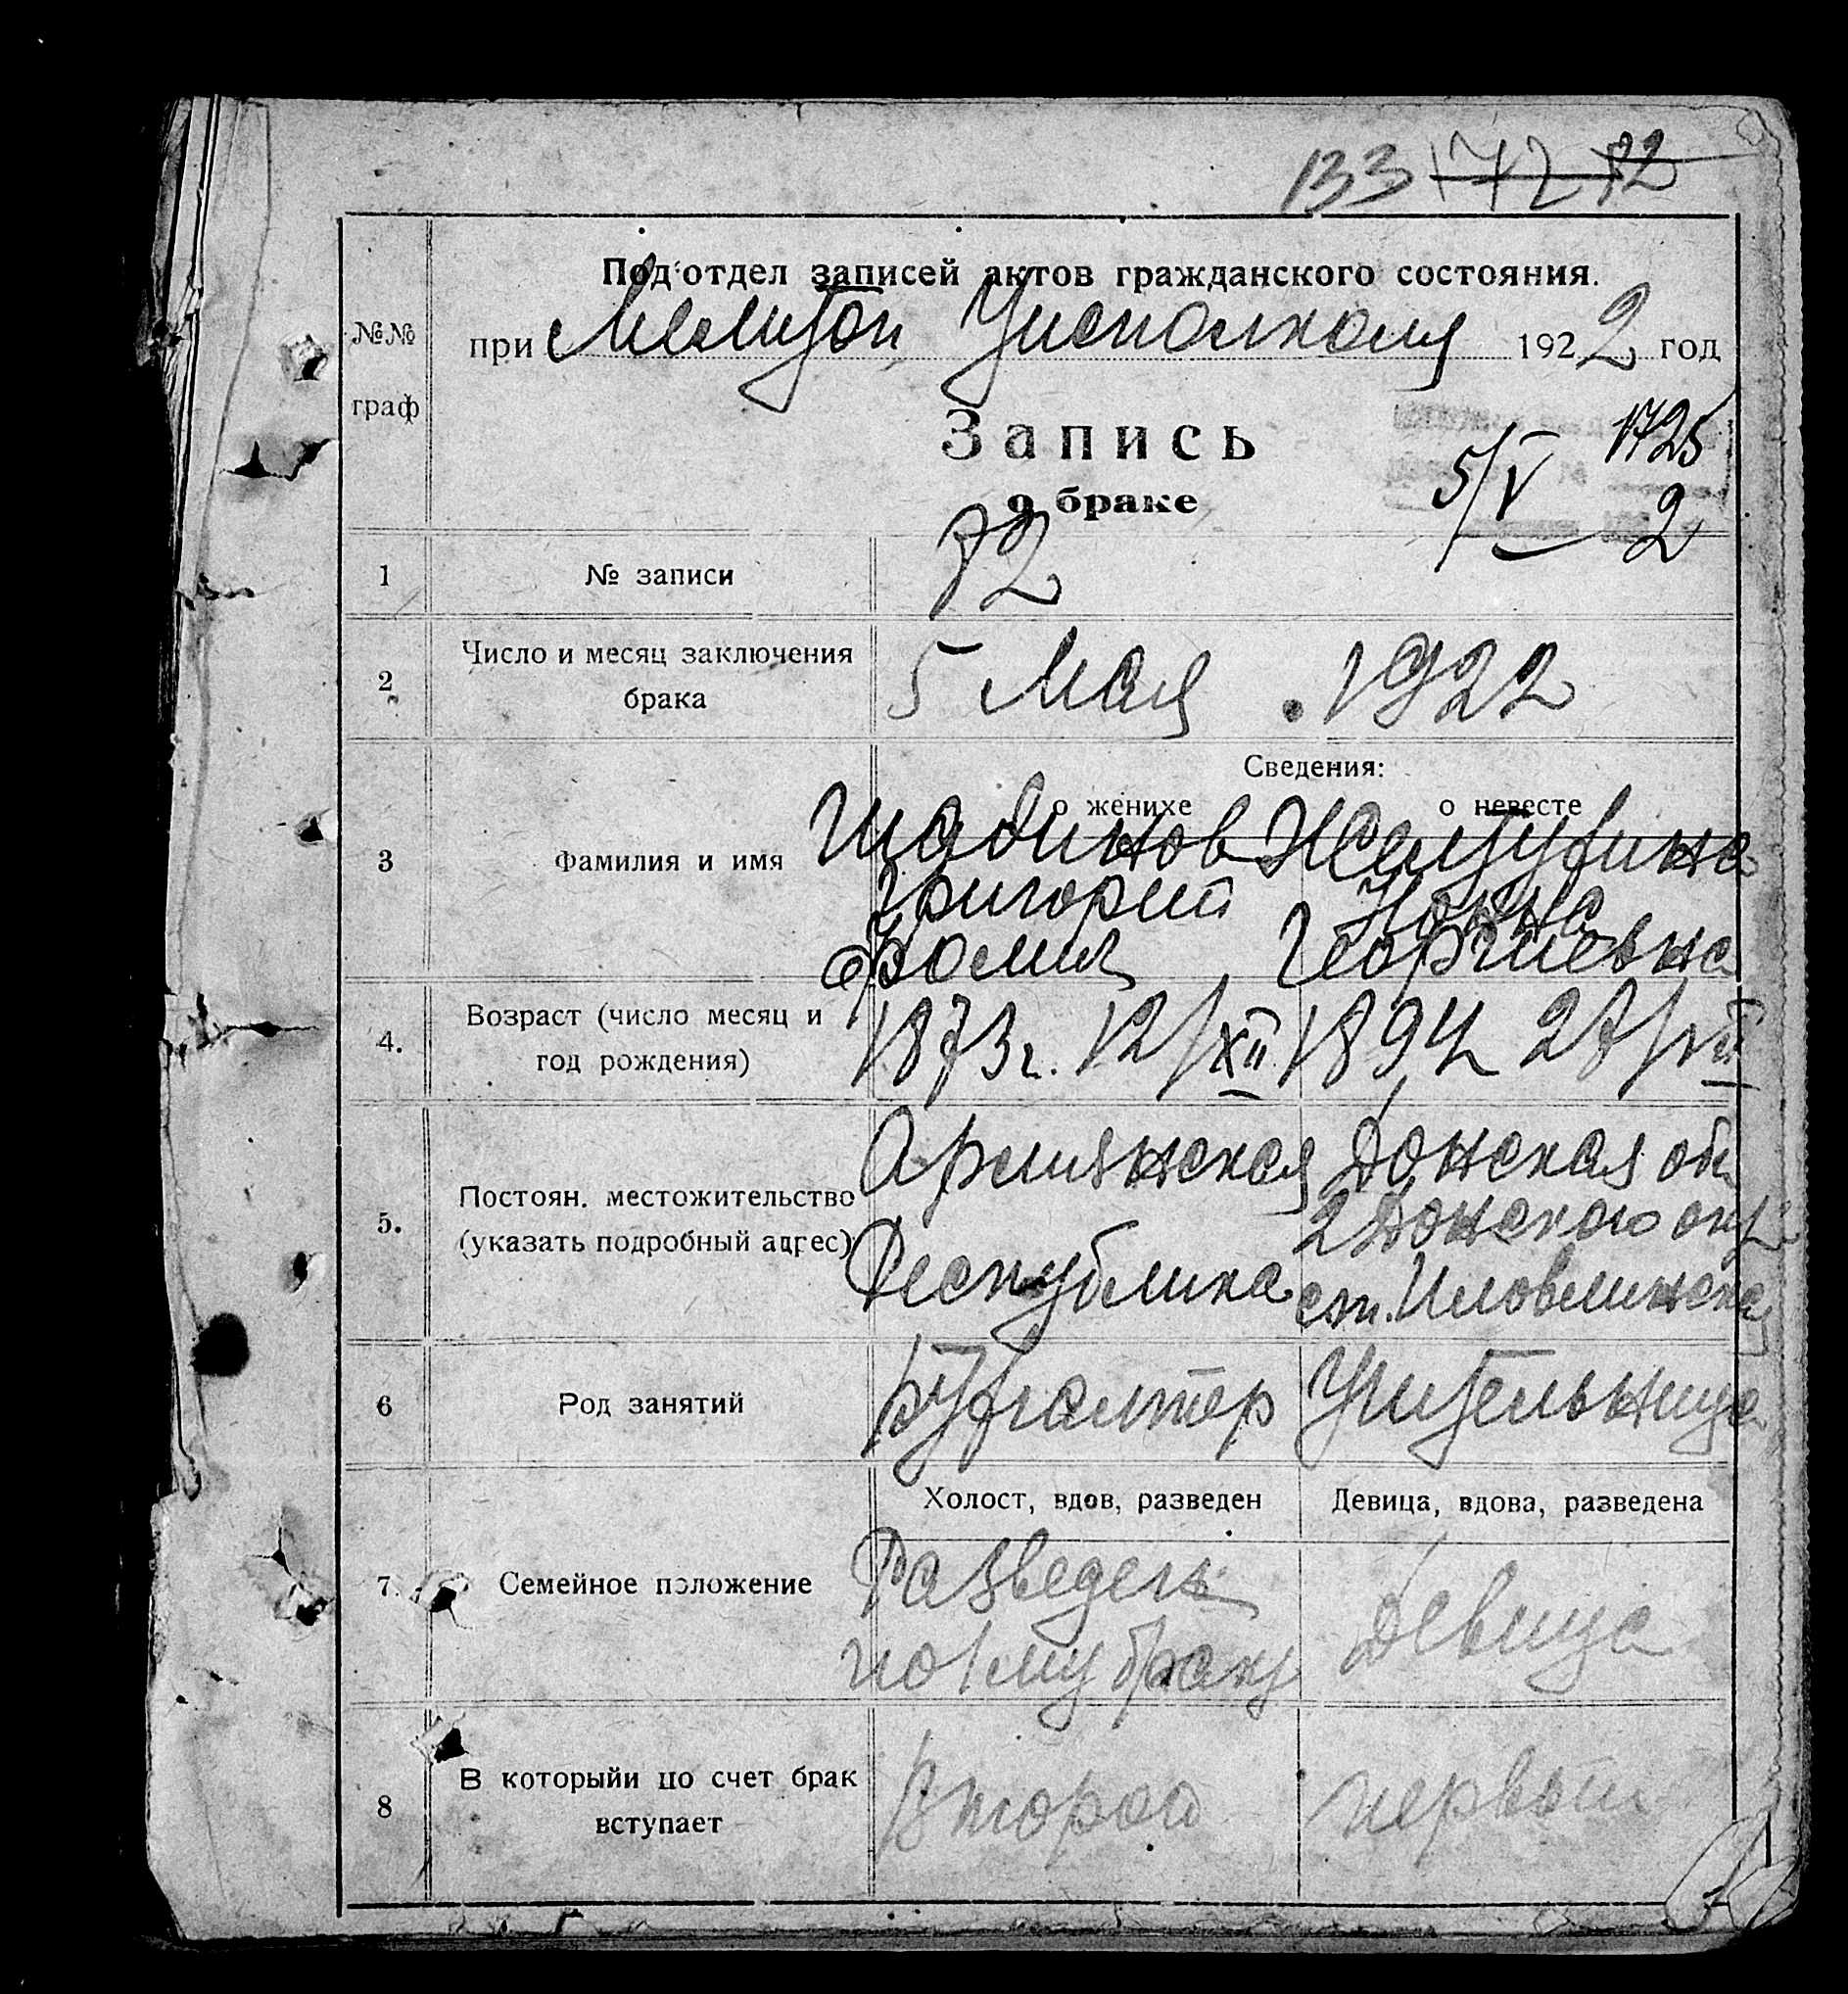 133 172 72
Под'отдел записей актов гражданского состояния.
№№
граф
при Мелитоп. Уисполкома 1922 год
Запись
о браке
1725
5/V 2
1 № записи 72
2 Число и месяц заключения
брака
5 Мая 1922
Сведения:
о женихе о невесте
3 Фамилия и имя
Шадинов Желтухина
Григорий Нонна
Фомич Георгиевна
4. Возраст (число месяц и
год рождения)
1873 г. 12/XII 1894
5. Постоян. местожительство
(указать подробный адрес)
Армянская Донская обл
2 Донского окр.
Республика ст. Иловлинская
6 Род занятий
Бухгалтер Учительница
Холост, вдов, разведен Девица, вдова, разведена
7. Семейное положение
Разведен Девица
по 1му браку
8 В которыйи по счет брак
вступает
Второй первый